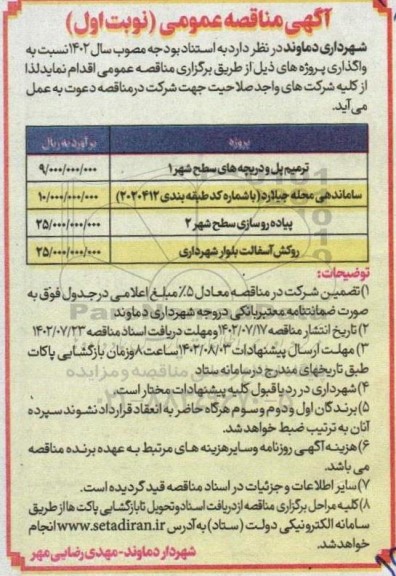 آگهی مناقصه عمومی (نوبت اول)
شهرداری دماوند در نظر دارد به استناد بودجه مصوب سال ۱۴۰۲ نسبت به
واگذاری پروژه های ذیل از طریق برگزاری مناقصه عمومی اقدام نماید لذا
از کلیه شرکت های واجد صلاحیت جهت شرکت در مناقصه دعوت به عمل
می آید.
پروژه	برآورد به ریال
ترمیم پل و دریچه های سطح شهر ۱	۹/۰۰۰/۰۰۰/۰۰۰
ساماندهی محله جیلارد (با شماره کد طبقه بندی ۲۰۲۰۴۱۲)	۱۰/۰۰۰/۰۰۰/۰۰۰
پیاده رو سازی سطح شهر ۲	۲۵/۰۰۰/۰۰۰/۰۰۰
روکش آسفالت بلوار شهرداری	۲۵/۰۰۰/۰۰۰/۰۰۰
توضیحات:
۱) تضمین شرکت در مناقصه معادل ۵٪ مبلغ اعلامی در جدول فوق به
صورت ضمانتنامه معتبر بانکی در وجه شهرداری دماوند
۲) تاریخ انتشار مناقصه ۱۴۰۲/۰۷/۱۷ و مهلت دریافت اسناد مناقصه ۱۴۰۲/۰۷/۲۳
۳) مهلت ارسال پیشنهادات ۱۴۰۲/۰۸/۰۳ ساعت ۸ و زمان بازگشایی پاکات
طبق تاریخهای مندرج در سامانه ستاد
۴) شهرداری در رد یا قبول کلیه پیشنهادات مختار است.
۵) برندگان اول و دوم و سوم هرگاه حاضر به انعقاد قرارداد نشوند سپرده
آنان به ترتیب ضبط خواهد شد.
۶) هزینه آگهی روزنامه و سایر هزینه های مرتبط به عهده برنده مناقصه
می باشد.
۷) سایر اطلاعات و جزئیات در اسناد مناقصه قید گردیده است.
۸) کلیه مراحل برگزاری مناقصه از دریافت اسناد و تحویل تا بازگشایی پاکت ها از طریق
سامانه الکترونیکی دولت (ستاد) به آدرس www.setadiran.ir انجام
خواهد شد.
شهردار دماوند - مهدی رضایی مهر